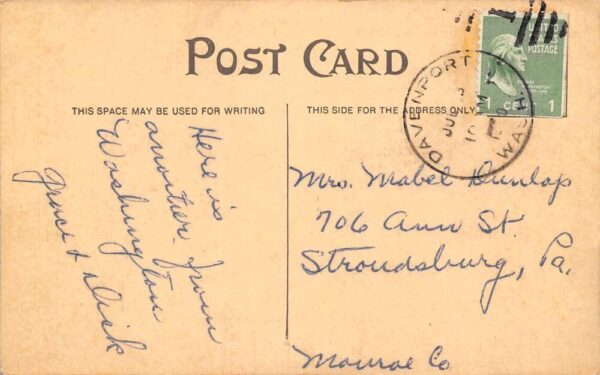 POST CARD
THIS SPACE MAY BE USED FOR WRITING
THIS SIDE FOR THE ADDRESS ONLY
Here is
another from
Washington
Grace & Dick
Mrs. Mabel Dunlap
706 Ann St.
Stroudsburg, Pa.
Monroe Co
DAVENPORT
WASH
UNITED
STATES
POSTAGE
1 CENT 1